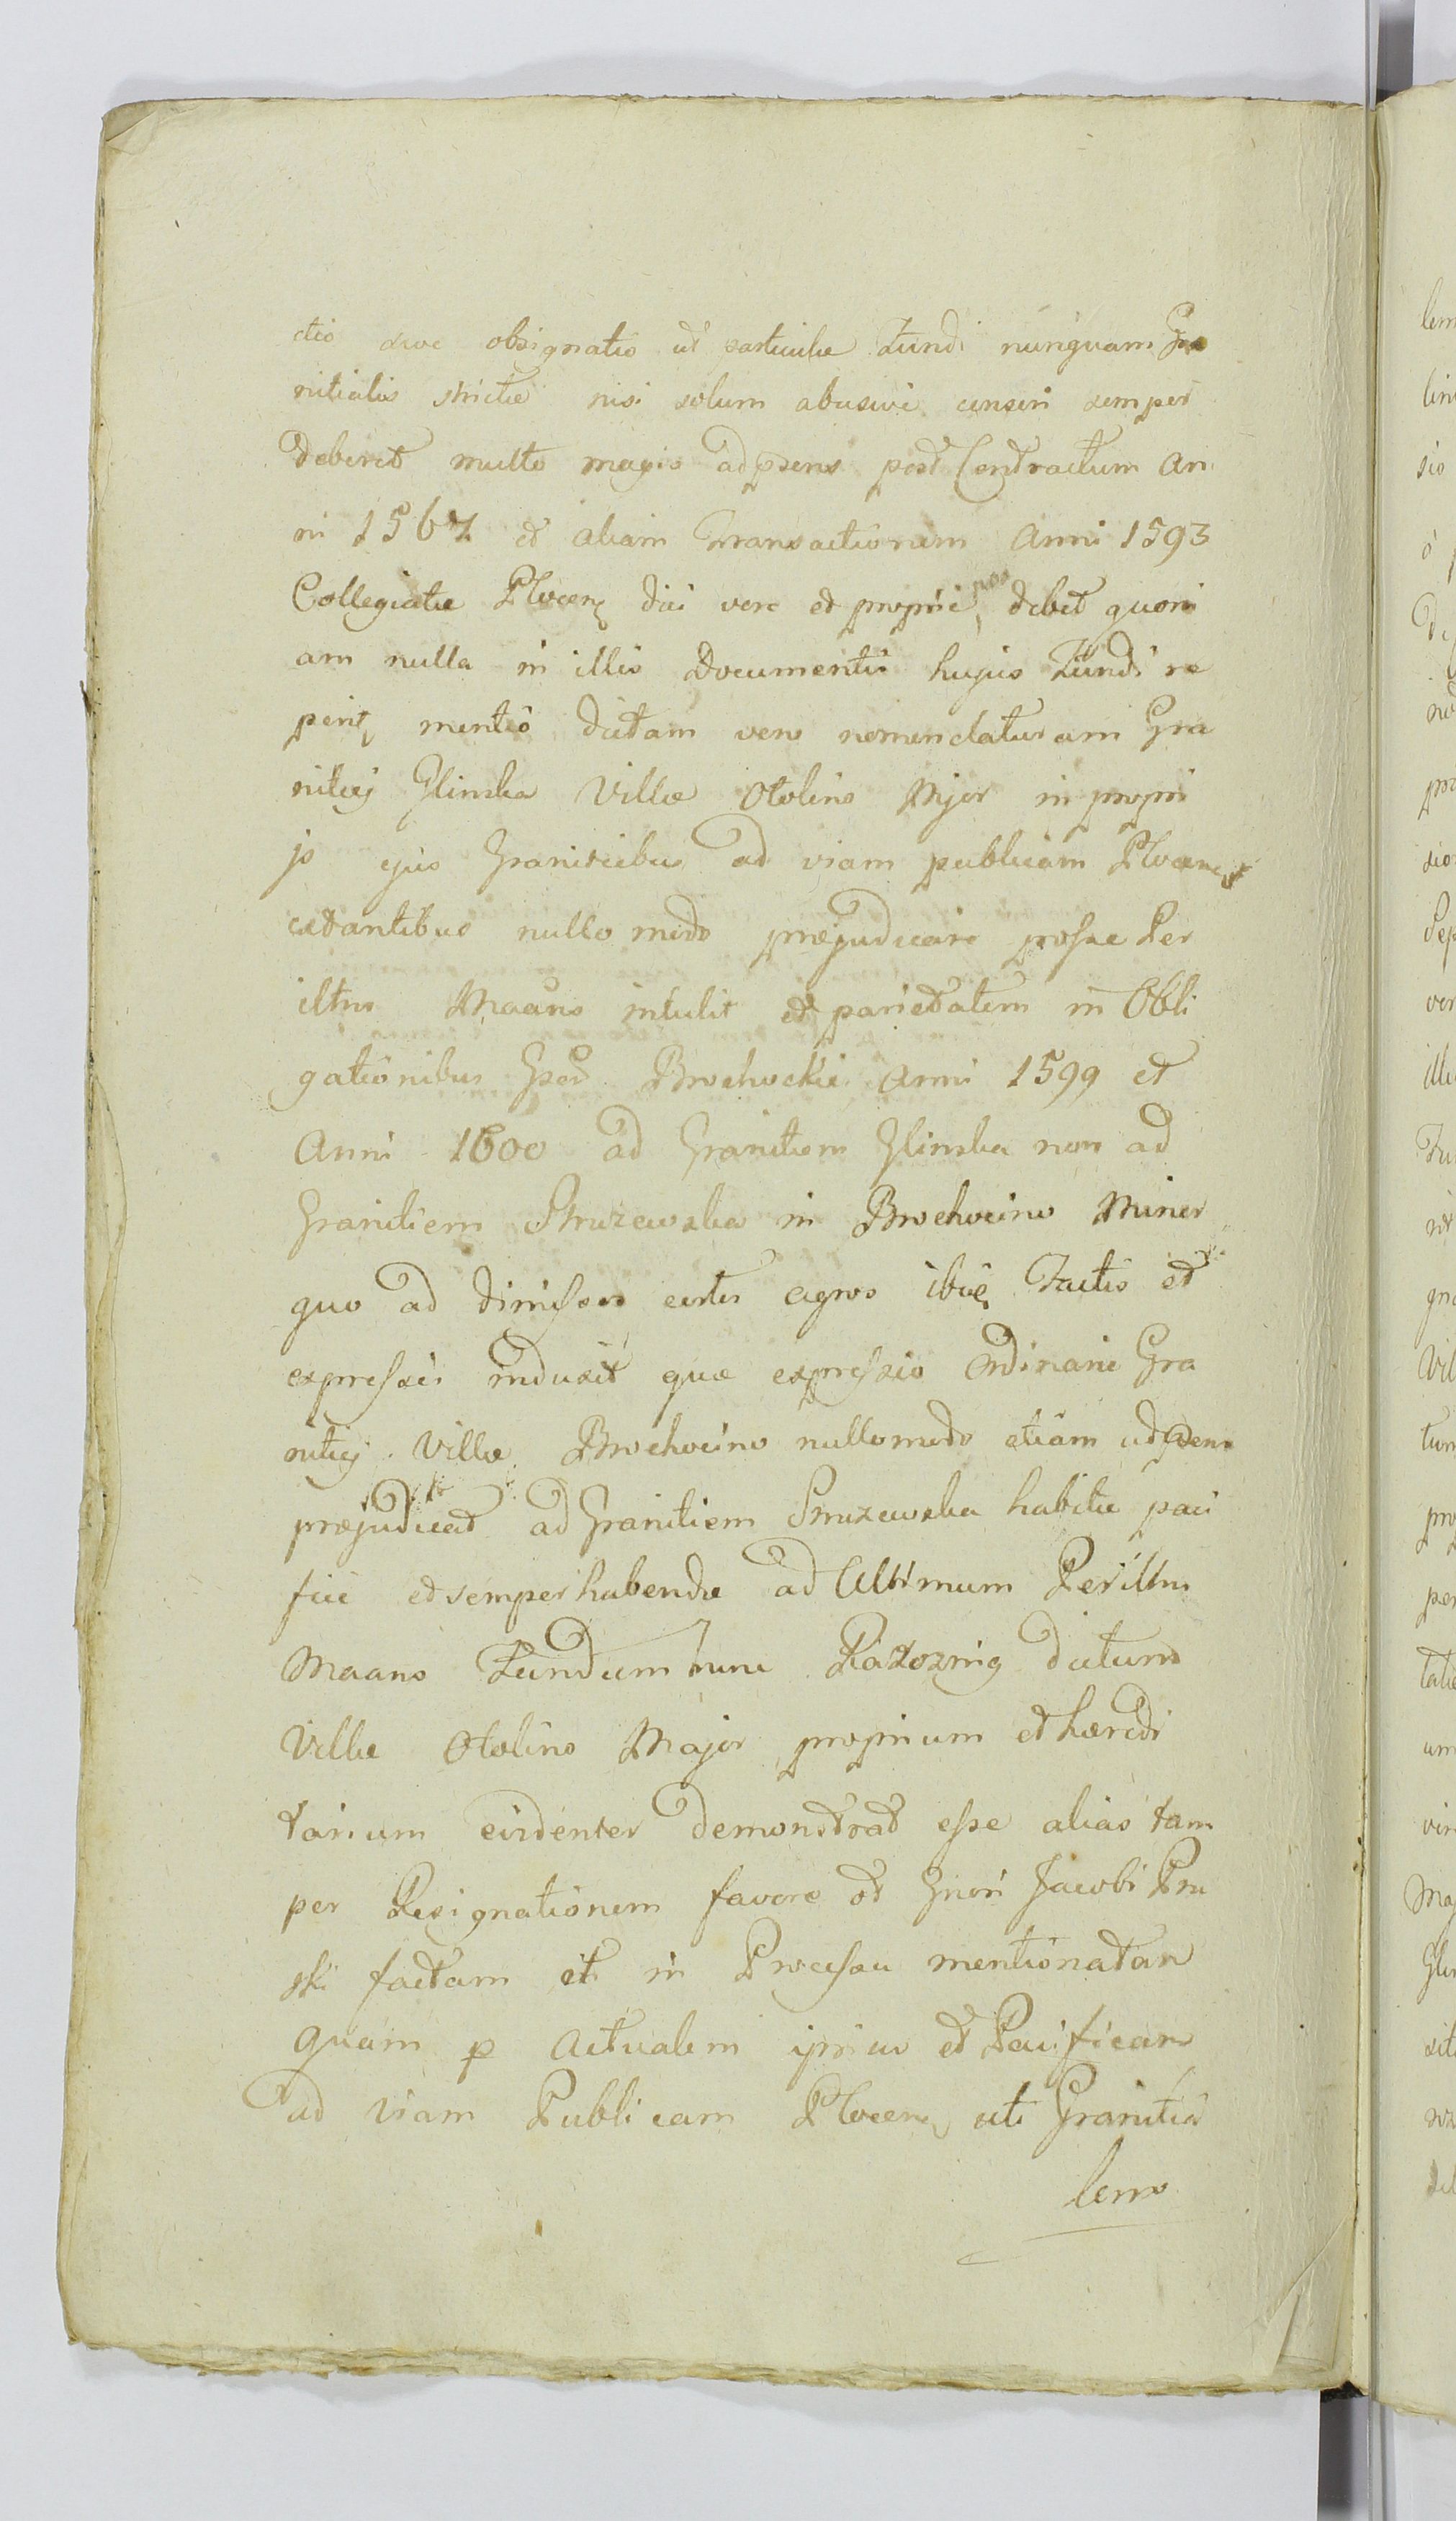 ctio sive obsignatio ut particulae Fundi nunquam Gra
nitialis stricte nisi solum abusive censeri semper
deberet multo magis ad psens post Contractum An
ni 1567 et aliam Transactionem Anni 1593
Collegiatae Plocen dici vere et proprie non debet quoni
am nulla in illis Documentis hujus Fundi re
perit mentio dictam vero nomenclaturam Gra
nitiej Glinska Villae Otolino Mjor in propri
js ejus Granitiebus ad viam publicam Plocen
extantibus nullo modo praejudicare posse Per
illtris Maans intulit et parietatem in Obli
gationibus Gsor Brochockie Anni 1599 et
Anni 1600 ad Granitiem Glinska non ad
Granitiem Struzewska in Brochocino Minor
quo ad dimissos certos agros ibiē factis et
expressis induxit quae expressio Ordinarie Gra
nitiej Villae Brochocino nullomodo etiam ad psens
praejudicat ad Granitiem Struzewska habitae paci
fice et semper habendae ad Ultimum Perilltris
Maans Fundum hunc Piatoznig dictum
Villae Otolino Major proprium et haeredi
tarium evidenter demonstrat esse alias tam
per Resignationem favore ot Gnosi Jacobi Pru
ski factam et in Processu mentionatam
quam p Actualem ipsius et Pacificam
ad viam Publicam Plocen uti Granitia
lem